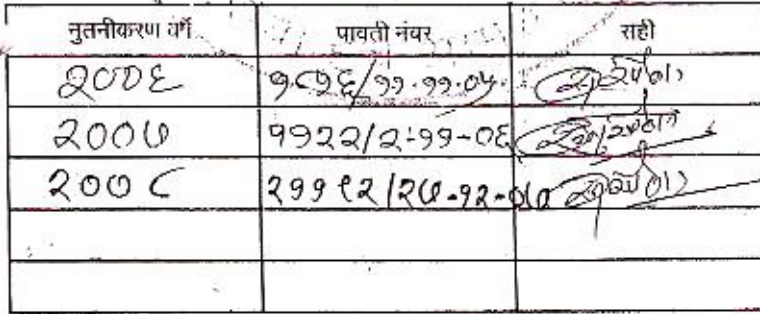 नुतनीकरण वर्ष पावती नंवर सही
२००६ १८१६/११.११.०५
२००७ ११२२/२-११-०६
२००८ २११९२/२७-१२-०७